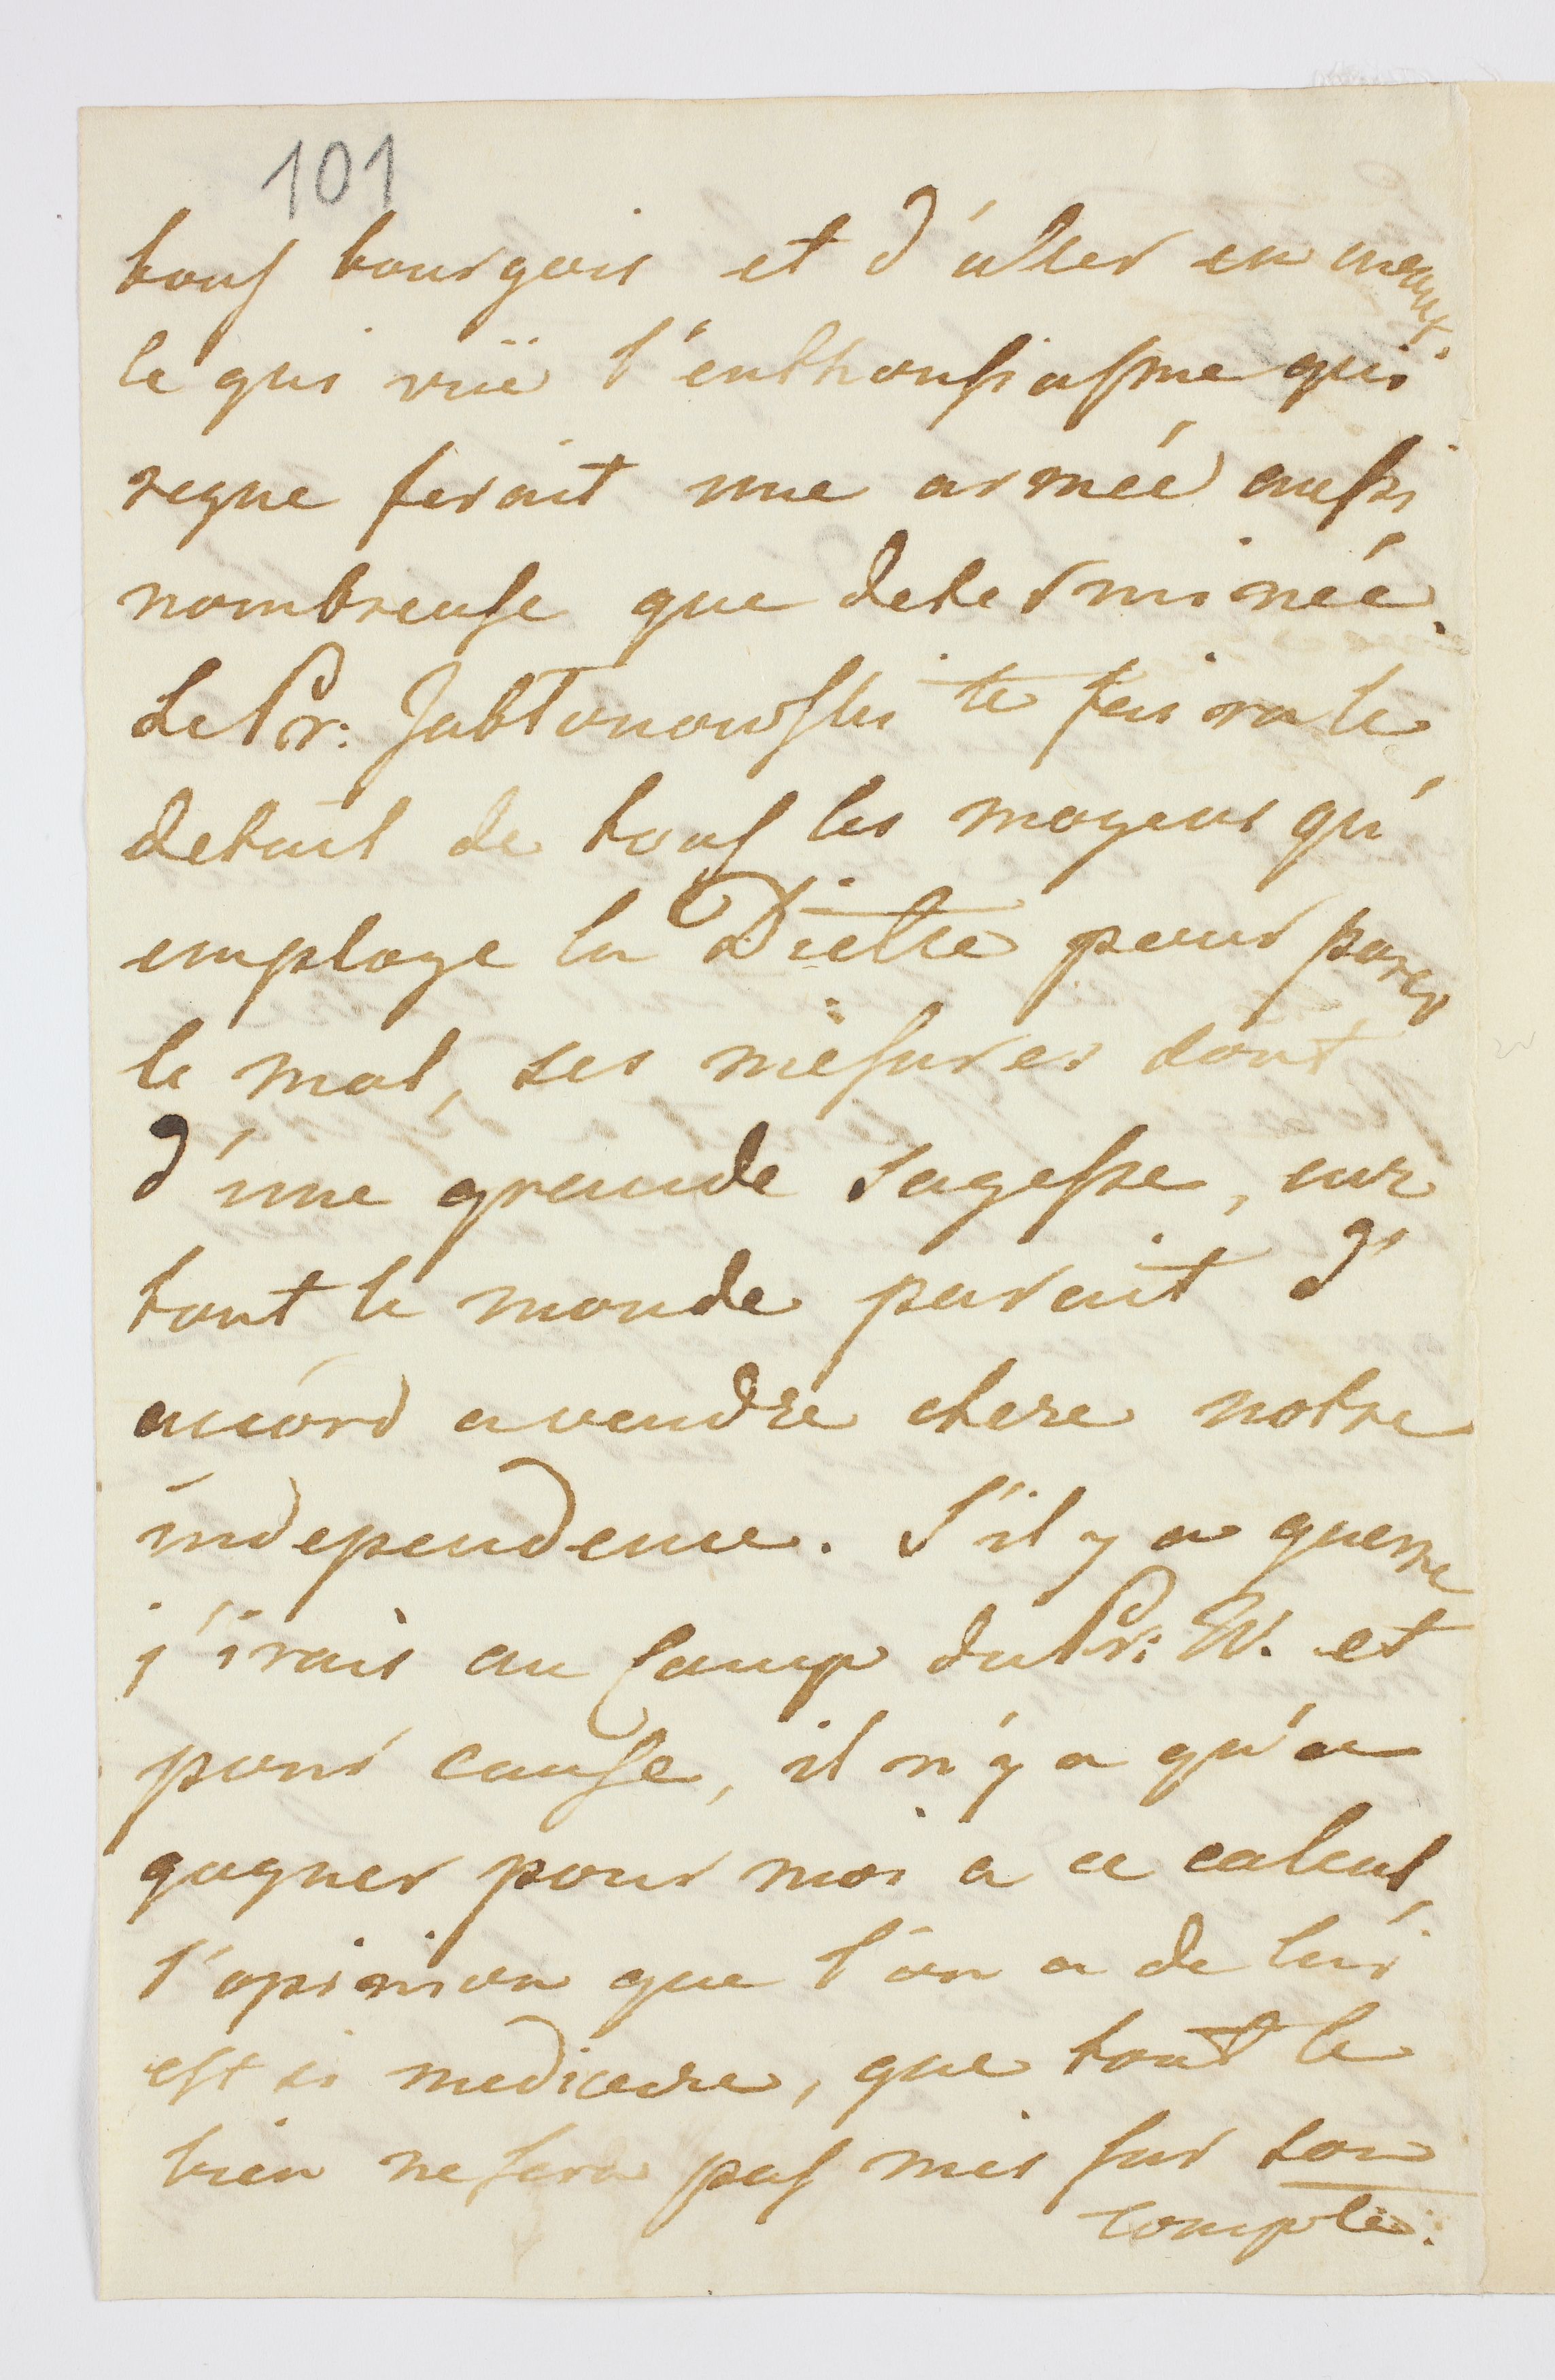 101
tous bourgois et d'aller en
ce qui vuë l'enthousiasme qui
regne ferait une armée aussi
nombreuse que determinée.
Le Pr: Jabłonowski te faira le
detail de tous les moyens qu'
employe la Diette pour parer
le mal, ses mesures sont
d'une grande sagesse, car
tout le monde parait d'
accord a vendre chere notre
independence. S'il y a guerre
j'irais au Camp du Pr: W. et
pour cause, il n'y a qu'a
gagner pour moi a ce calcul,
l'opinion que l'on a de lui
est si mediocre, que tout le
bien ne sera pas mis sur son
compte: